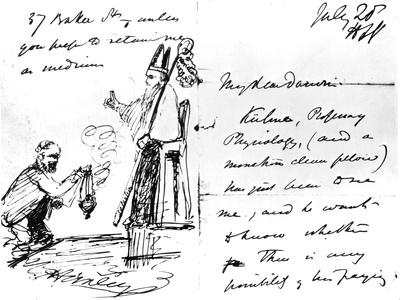 37 Baker St, unless
you to retain me
as medium
July 20
My dear Darwin
Kühne, Professor
Physiology, (and a
clever fellow)
has just been to see
me, and he wants
to know whether
there is any
possibility of his paying
T H Huxley